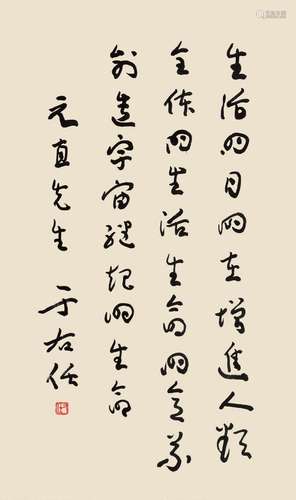 生活的目的在增進人類
全体的生活生命的意義
創造宇宙繼起的生命
元直先生 于右任